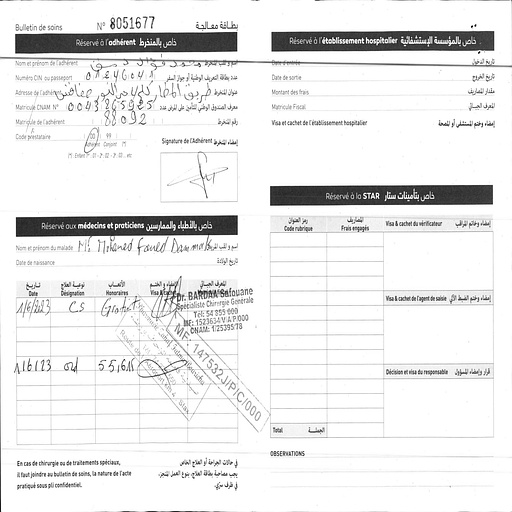 Bulletin de soins N° 8051677 بطاقة معالجة
Réservé à l'adhérent خاص بالمنخرط
Nom et prénom de l'adhérent
Numéro CIN ou passeport عدد بطاقة التعريف الوطنية أو جواز السفر
Adresse de l'adhérent عنوان المنخرط
Matricule CNAM N° معرف الصندوق الوطني للتأمين على المرض عدد
Matricule de l'adhérent 88092 رقم المنخرط
Code prestataire 00 99
Adhérent Conjoint
Signature de l'Adhérent إمضاء المنخرط
Réservé aux médecins et praticiens خاص بالأطباء والممارسين
Nom et prénom du malade Mr Mohamed Foued اسم و لقب المريض
Date de naissance تاريخ الولادة
تاريخ نوعية العلاج الأتعاب الإمضاء و الختم المعرف الجبائي
Date Désignation Honoraires Visa
1/6/2023 CS Gratuit
Dr. BARDAA Safouane
Spécialiste Chirurgie Générale
Tél: 54 855 000
MF: 1523634 V/A P/000
CNAM: 1/25395/78
MF: 147532J/P/C/000
1/6/23 55,611
En cas de chirurgie ou de traitements spéciaux,
il faut joindre au bulletin de soins, la nature de l'acte
pratiqué sous pli confidentiel.
في حالات الجراحة أو العلاج الخاص
يجب مصاحبة بطاقة العلاج، بنوع العمل المنجز،
في ظرف سري.
Réservé à l'établissement hospitalier خاص بالمؤسسة الإستشفائية
Date d'entrée تاريخ الدخول
Date de sortie تاريخ الخروج
Montant des frais مقدار المصاريف
Matricule Fiscal المعرف الجبائي
Visa et cachet de l'établissement hospitalier إمضاء وختم المستشفى أو المصحة
Réservé à la STAR خاص بتأمينات ستار
رمز العنوان المصاريف
Code rubrique Frais engagés
Visa & cachet du vérificateur إمضاء وخاتم المراقب
Visa & cachet de l'agent de saisie
Décision et visa du responsable قرار وإمضاء المسؤول
Total الجملة
OBSERVATIONS